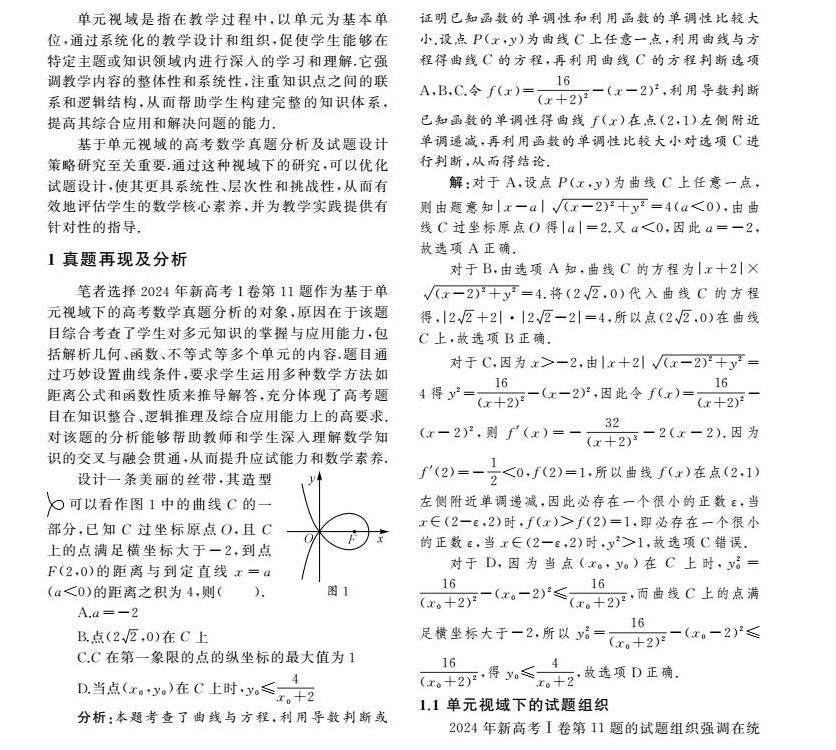 单元视域是指在教学过程中,以单元为基本单
位,通过系统化的教学设计和组织,促使学生能够在
特定主题或知识领域内进行深入的学习和理解.它强
调教学内容的整体性和系统性,注重知识点之间的联
系和逻辑结构,从而帮助学生构建完整的知识体系,
提高其综合应用和解决问题的能力.
基于单元视域的高考数学真题分析及试题设计
策略研究至关重要.通过这种视域下的研究,可以优化
试题设计,使其更具系统性、层次性和挑战性,从而有
效地评估学生的数学核心素养,并为教学实践提供有
针对性的指导.
1 真题再现及分析
笔者选择 2024 年新高考Ⅰ卷第 11 题作为基于单
元视域下的高考数学真题分析的对象,原因在于该题
目综合考查了学生对多元知识的掌握与应用能力,包
括解析几何、函数、不等式等多个单元的内容.题目通
过巧妙设置曲线条件,要求学生运用多种数学方法如
距离公式和函数性质来推导解答,充分体现了高考题
目在知识整合、逻辑推理及综合应用能力上的高要求.
对该题的分析能够帮助教师和学生深入理解数学知
识的交叉与融会贯通,从而提升应试能力和数学素养.
设计一条美丽的丝带,其造型
可以看作图 1 中的曲线 C 的一
部分,已知 C 过坐标原点 O,且 C
上的点满足横坐标大于-2,到点
F(2,0)的距离与到定直线 x=a
(a<0)的距离之积为 4,则( ).
y
O F x
图 1
A.a=-2
B.点(2√2,0)在 C 上
C.C 在第一象限的点的纵坐标的最大值为 1
D.当点(x₀,y₀)在 C 上时,y₀≤4/(x₀+2)
分析:本题考查了曲线与方程,利用导数判断或
证明已知函数的单调性和利用函数的单调性比较大
小.设点 P(x,y)为曲线 C 上任意一点,利用曲线与方
程得曲线 C 的方程,再利用曲线 C 的方程判断选项
A,B,C.令 f(x)=16/(x+2)²-(x-2)²,利用导数判断
已知函数的单调性得曲线 f(x)在点(2,1)左侧附近
单调递减,再利用函数的单调性比较大小对选项 C 进
行判断,从而得结论.
解:对于 A,设点 P(x,y)为曲线 C 上任意一点,
则由题意知|x-a|√((x-2)²+y²)=4(a<0),由曲
线 C 过坐标原点 O 得|a|=2.又 a<0,因此 a=-2,
故选项 A 正确.
对于 B,由选项 A 知,曲线 C 的方程为|x+2|×
√((x-2)²+y²)=4.将(2√2,0)代入曲线 C 的方程
得,|2√2+2|·|2√2-2|=4,所以点(2√2,0)在曲线
C 上,故选项 B 正确.
对于 C,因为 x>-2,由|x+2|√((x-2)²+y²)=
4 得 y²=16/(x+2)²-(x-2)²,因此令 f(x)=16/(x+2)²-
(x-2)²,则 f′(x)=-32/(x+2)³-2(x-2).因为
f′(2)=-1/2<0,f(2)=1,所以曲线 f(x)在点(2,1)
左侧附近单调递减,因此必存在一个很小的正数 ε,当
x∈(2-ε,2)时,f(x)>f(2)=1,即必存在一个很小
的正数 ε,当 x∈(2-ε,2)时,y²>1,故选项 C 错误.
对于 D,因为当点(x₀,y₀)在 C 上时,y₀²=
16/(x₀+2)²-(x₀-2)²≤16/(x₀+2)²,而曲线 C 上的点满
足横坐标大于-2,所以 y₀²=16/(x₀+2)²-(x₀-2)²≤
16/(x₀+2)²,得 y₀≤4/(x₀+2),故选项 D 正确.
1.1 单元视域下的试题组织
2024 年新高考Ⅰ卷第 11 题的试题组织强调在统